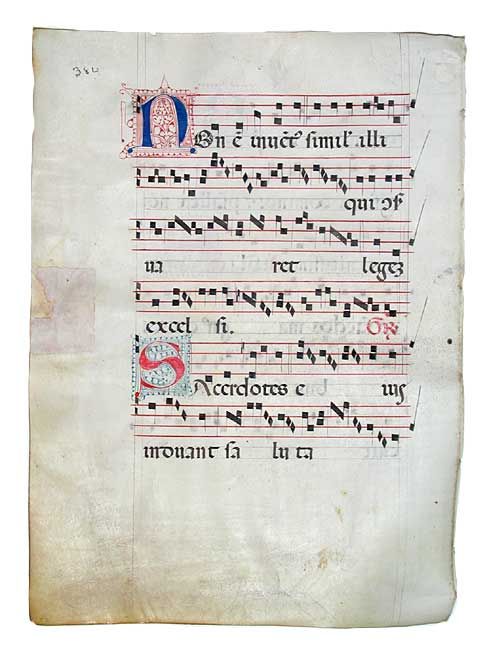 384
Non ē inuēt' simil' illi
qui cōs
ua ret legeʒ
excel si. Gr̄
Sacerdotes e ius
induant sa lu ta